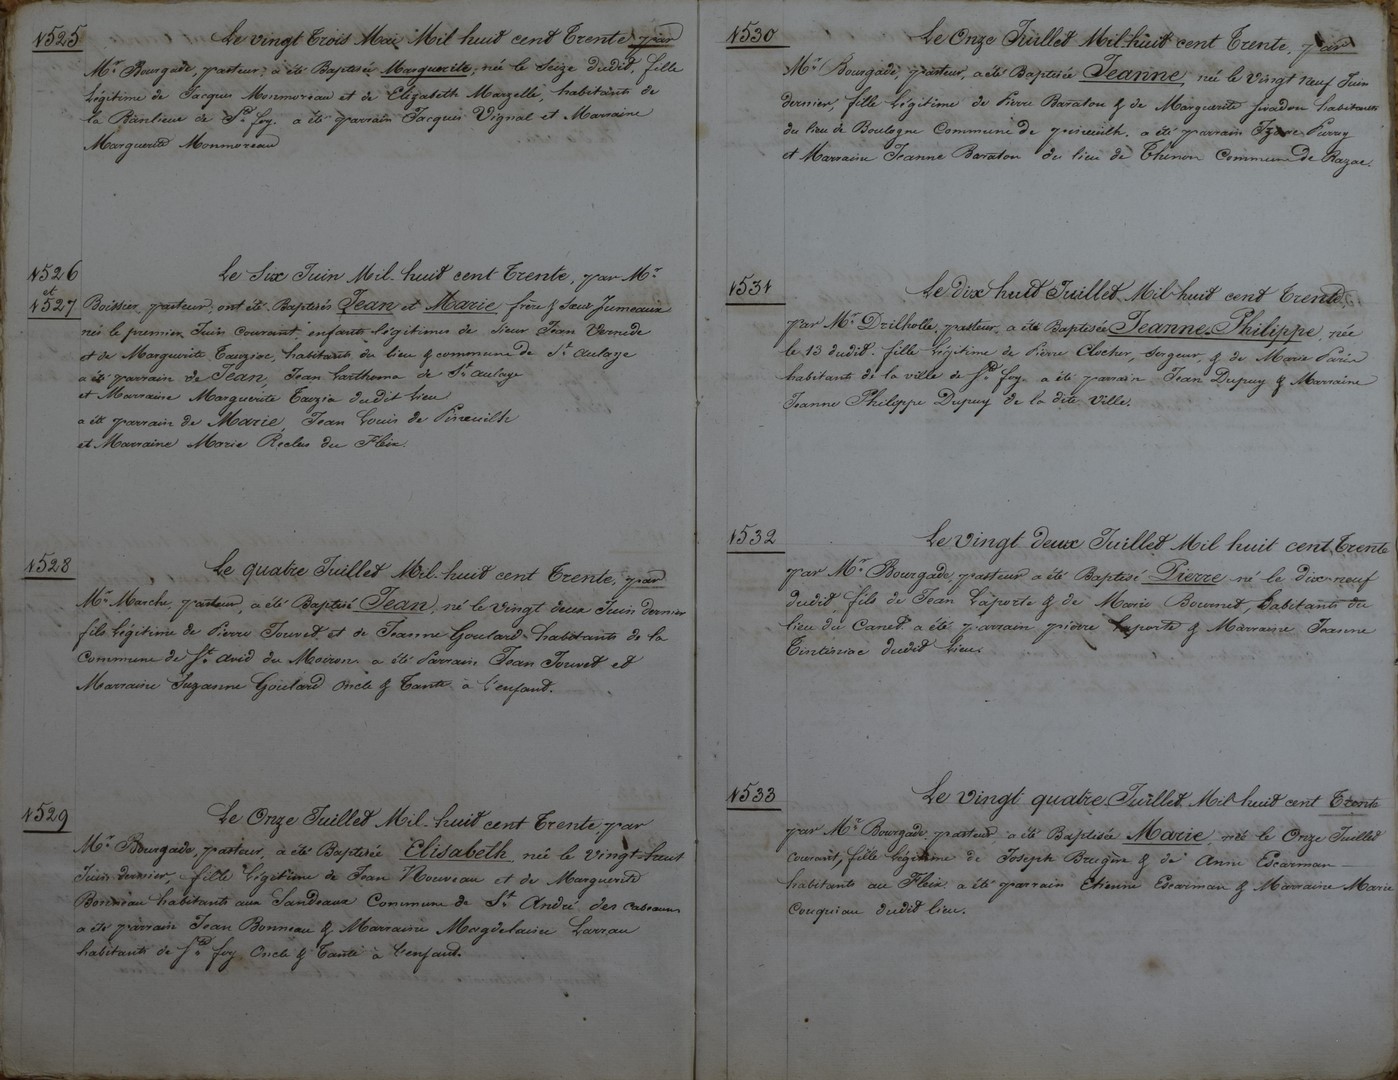 1525
Le vingt trois Mai Mil huit cent Trente, par
Mr. Bourgade, pasteur, a été Baptisée Marguerite, née le Seize dudit, fille
légitime de Jacques Monmoreau et de Elizabeth Marzelle, habitants de
la Banlieue de Ste. foy. a été parrain Jacques Vignal et Marraine
Marguerite Monmoreau
1526
et
1527
Le Six Juin Mil-huit cent Trente, par Mr.
Boissier, pasteur, ont été Baptisés Jean et Marie frère & Sœur Jumeaux
nés le premier Juin Courant, enfants légitimes de Sieur Jean Vernide
et de Marguerite Tauziac, habitants du lieu & commune de St. aulaye
a été parrain de Jean, Jean de St. aulaye
et Marraine Marguerite Tauzia dudit lieu
a été parrain de Marie, Jean Louis de Pineuilh
et Marraine Marie Reclus du Fleix.
1528
Le quatre Juillet Mil-huit cent Trente, par
Mr. Marche, pasteur, a été Baptisé Jean, né le Vingt deux Juin dernier
fils légitime de Pierre Jouvet et de Jeanne Goulard habitants de la
Commune de St. avid du Moiron a été Parrain Jean Jouvet et
Marraine Suzanne Goulard oncle & Tante à l'enfant.
1529
Le Onze Juillet Mil-huit cent Trente, par
Mr. Bourgade, pasteur, a été Baptisée Elisabeth née le Vingt-huit
Juin dernier, fille légitime de Jean Nouveau et de Marguerite
Bonneau habitants aux Sandeaux Commune de St. André des Cabeaux
a été parrain Jean Bonneau & Marraine Magdelaine Larrau
habitants de Ste. foy Oncle & Tante à l'enfant.
1530
Le Onze Juillet Mil-huit cent Trente, par
Mr. Bourgade, pasteur, a été Baptisée Jeanne, née le Vingt neuf Juin
dernier, fille légitime de Pierre Baraton & de Marguerite habitants
du lieu de Boulogne Commune de pineuilh. a été parrain Pierre
et Marraine Jeanne Baraton du lieu de Thenon Commune de Razac.
1531
Le dix huit Juillet Mil-huit cent Trente,
par Mr. Drilholle, pasteur, a été Baptisée Jeanne Philippe, née
le 13 dudit. fille légitime de Pierre Clucher, sergeur, & de Marie Paris
habitants de la ville de Ste. foy. a été parrain Jean Dupuy & Marraine
Jeanne Philippe Dupuy de la dite Ville.
1532
Le Vingt deux Juillet Mil huit cent Trente
par Mr. Bourgade, pasteur a été Baptisé Pierre né le dix-neuf
dudit, fils de Jean Laporte & de Marie Bournet, habitants du
lieu du Canet. a été parrain pierre Laporte & Marraine Jeanne
Tintiniac dudit lieu.
1533
Le Vingt quatre Juillet Mil huit cent Trente
par Mr. Bourgade, pasteur, a été Baptisée Marie, née le Onze Juillet
courant, fille légitime de Joseph Brugère & de Anne Escarman
habitants au Fleix. a été parrain Etienne Escarman & Marraine Marie
Couquiau dudit lieu.